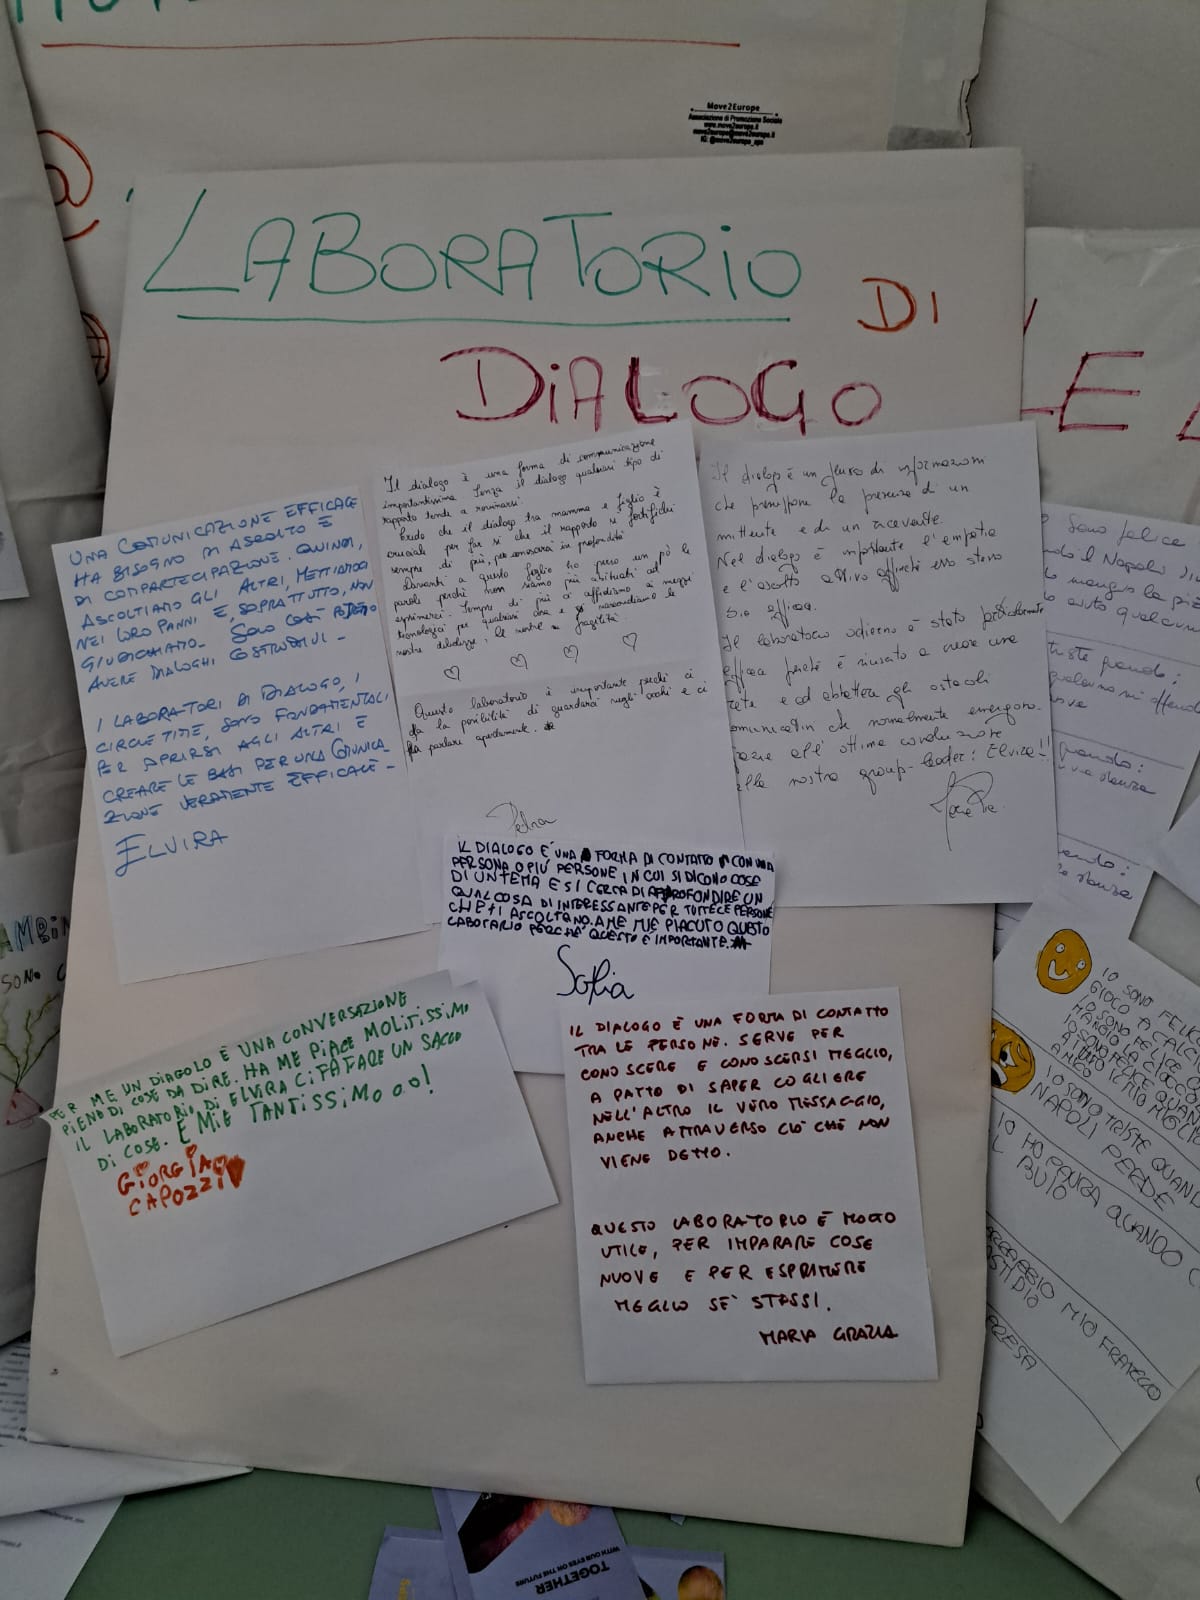 Move2Europe
Associazione di Promozione Sociale
www.move2europe.it
move2europe@move2europe.it
IG: @move2europe_aps
LABORATORIO
DI
DIALOGO
UNA COMUNICAZIONE EFFICACE
HA BISOGNO DI ASCOLTO E
DI COMPARTECIPAZIONE. QUINDI,
ASCOLTIAMO GLI ALTRI, METTIAMOCI
NEI LORO PANNI E, SOPRATTUTTO, NON
GIUDICHIAMO. SOLO COSÌ POTREMO
AVERE DIALOGHI COSTRUTTIVI -
I LABORATORI DI DIALOGO, I
CIRCLE TIME, SONO FONDAMENTALI
PER APRIRSI AGLI ALTRI E
CREARE LE BASI PER UNA COMUNICA-
ZIONE VERAMENTE EFFICACE -
ELVIRA
Il dialogo è una forma di comunicazione
importantissima. Senza il dialogo qualsiasi tipo di
rapporto tende a rovinarsi.
Credo che il dialogo tra mamma e figlio è
cruciale per far sì che il rapporto si fortifichi
sempre di più, per conoscersi in profondità
Davanti a questo foglio ho perso un pò le
parole perché non siamo più abituati ad
esprimerci. Sempre di più ci affidiamo ai mezzi
tecnologici per qualsiasi cosa e nascondiamo le
nostre debolezze, le nostre fragilità.
Questo laboratorio è importante perché ci
dà la possibilità di guardarci negli occhi e ci
fa parlare apertamente.
Petra
Il dialogo è un flusso di informazioni
che presuppone la presenza di un
mittente e di un ricevente.
Nel dialogo è importante l'empatia
e l'ascolto attivo affinché esso stesso
sia efficace.
Il laboratorio odierno è stato particolarmente
efficace perché è riuscito a creare una
rete e ad abbattere gli ostacoli
comunicativi che normalmente emergono.
Grazie all'ottima conduzione
della nostra group-leader: Elvira!!
IL DIALOGO È UNA FORMA DI CONTATTO CON UNA
PERSONA O PIÙ PERSONE IN CUI SI DICONO COSE
DI UN TEMA E SI CERCA DI APPROFONDIRE UN
QUALCOSA DI INTERESSANTE PER TUTTE LE PERSONE
CHE TI ASCOLTANO. A ME MI E PIACUTO QUESTO
LABOTARIO PERCHÈ QUESTO È IMPORTANTE.
Sofia
PER ME UN DIAGOLO È UNA CONVERSAZIONE
PIENO DI COSE DA DIRE. HA ME PIACE MOLITISSIMO
IL LABORATORIO DI ELVIRA CI FA FARE UN SACCO
DI COSE. E MI È TANTISSIMO oo!
GIORGIA
CAPOZZI
IL DIALOGO È UNA FORMA DI CONTATTO
TRA LE PERSONE. SERVE PER
CONOSCERE E CONOSCERSI MEGLIO,
A PATTO DI SAPER COGLIERE
NELL'ALTRO IL VERO MESSAGGIO,
ANCHE ATTRAVERSO CIÒ CHE NON
VIENE DETTO.
QUESTO LABORATORIO È MOLTO
UTILE, PER IMPARARE COSE
NUOVE E PER ESPRIMERE
MEGLIO SE' STESSI.
MARIA GRAZIA
Sono felice
il Napoli
mangio la pizza
IO SONO FELICE
GIOCO A CALCIO
IO SONO FELICE
MANGIO LA CIOCCOL
IO SONO FELICE QUAN
IL MIO MIGL
AMICO
IO SONO TRISTE QUANDO
NAPOLI PERDE
IO HO PAURA QUANDO C
L BUIO
MIO FRATELLO
TOGETHER
WITH OUR EYES ON THE FUTURE